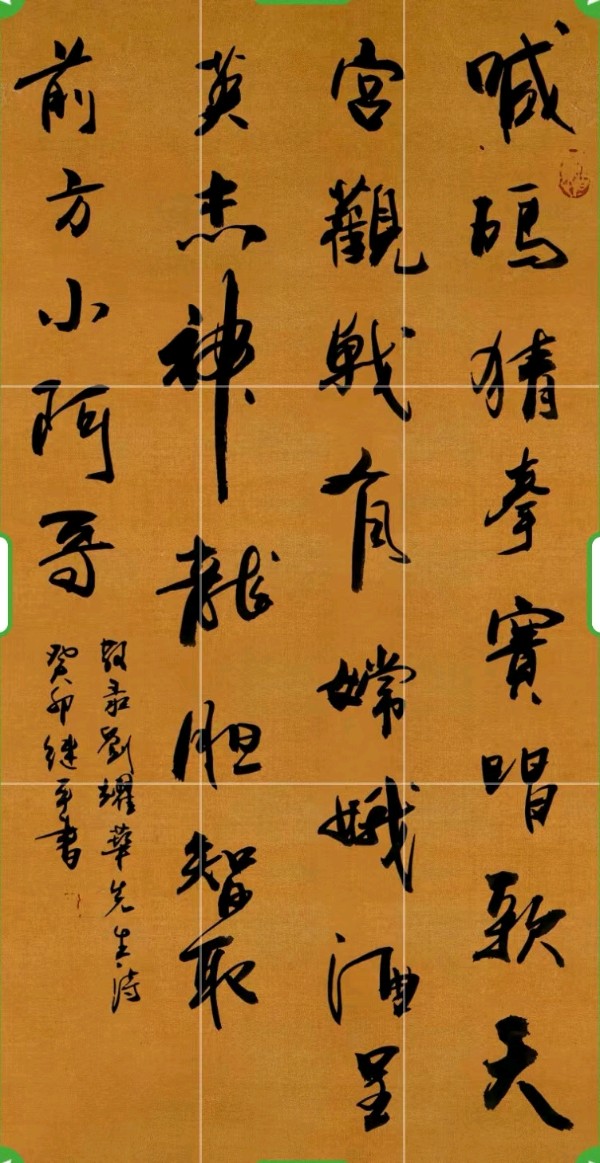 喊碼猜拳賽唱歌天
宮觀戰有嫦娥酒呈
英杰神龍胆智取
前方小阿哥
敬录劉耀華先生詩
癸卯继平書